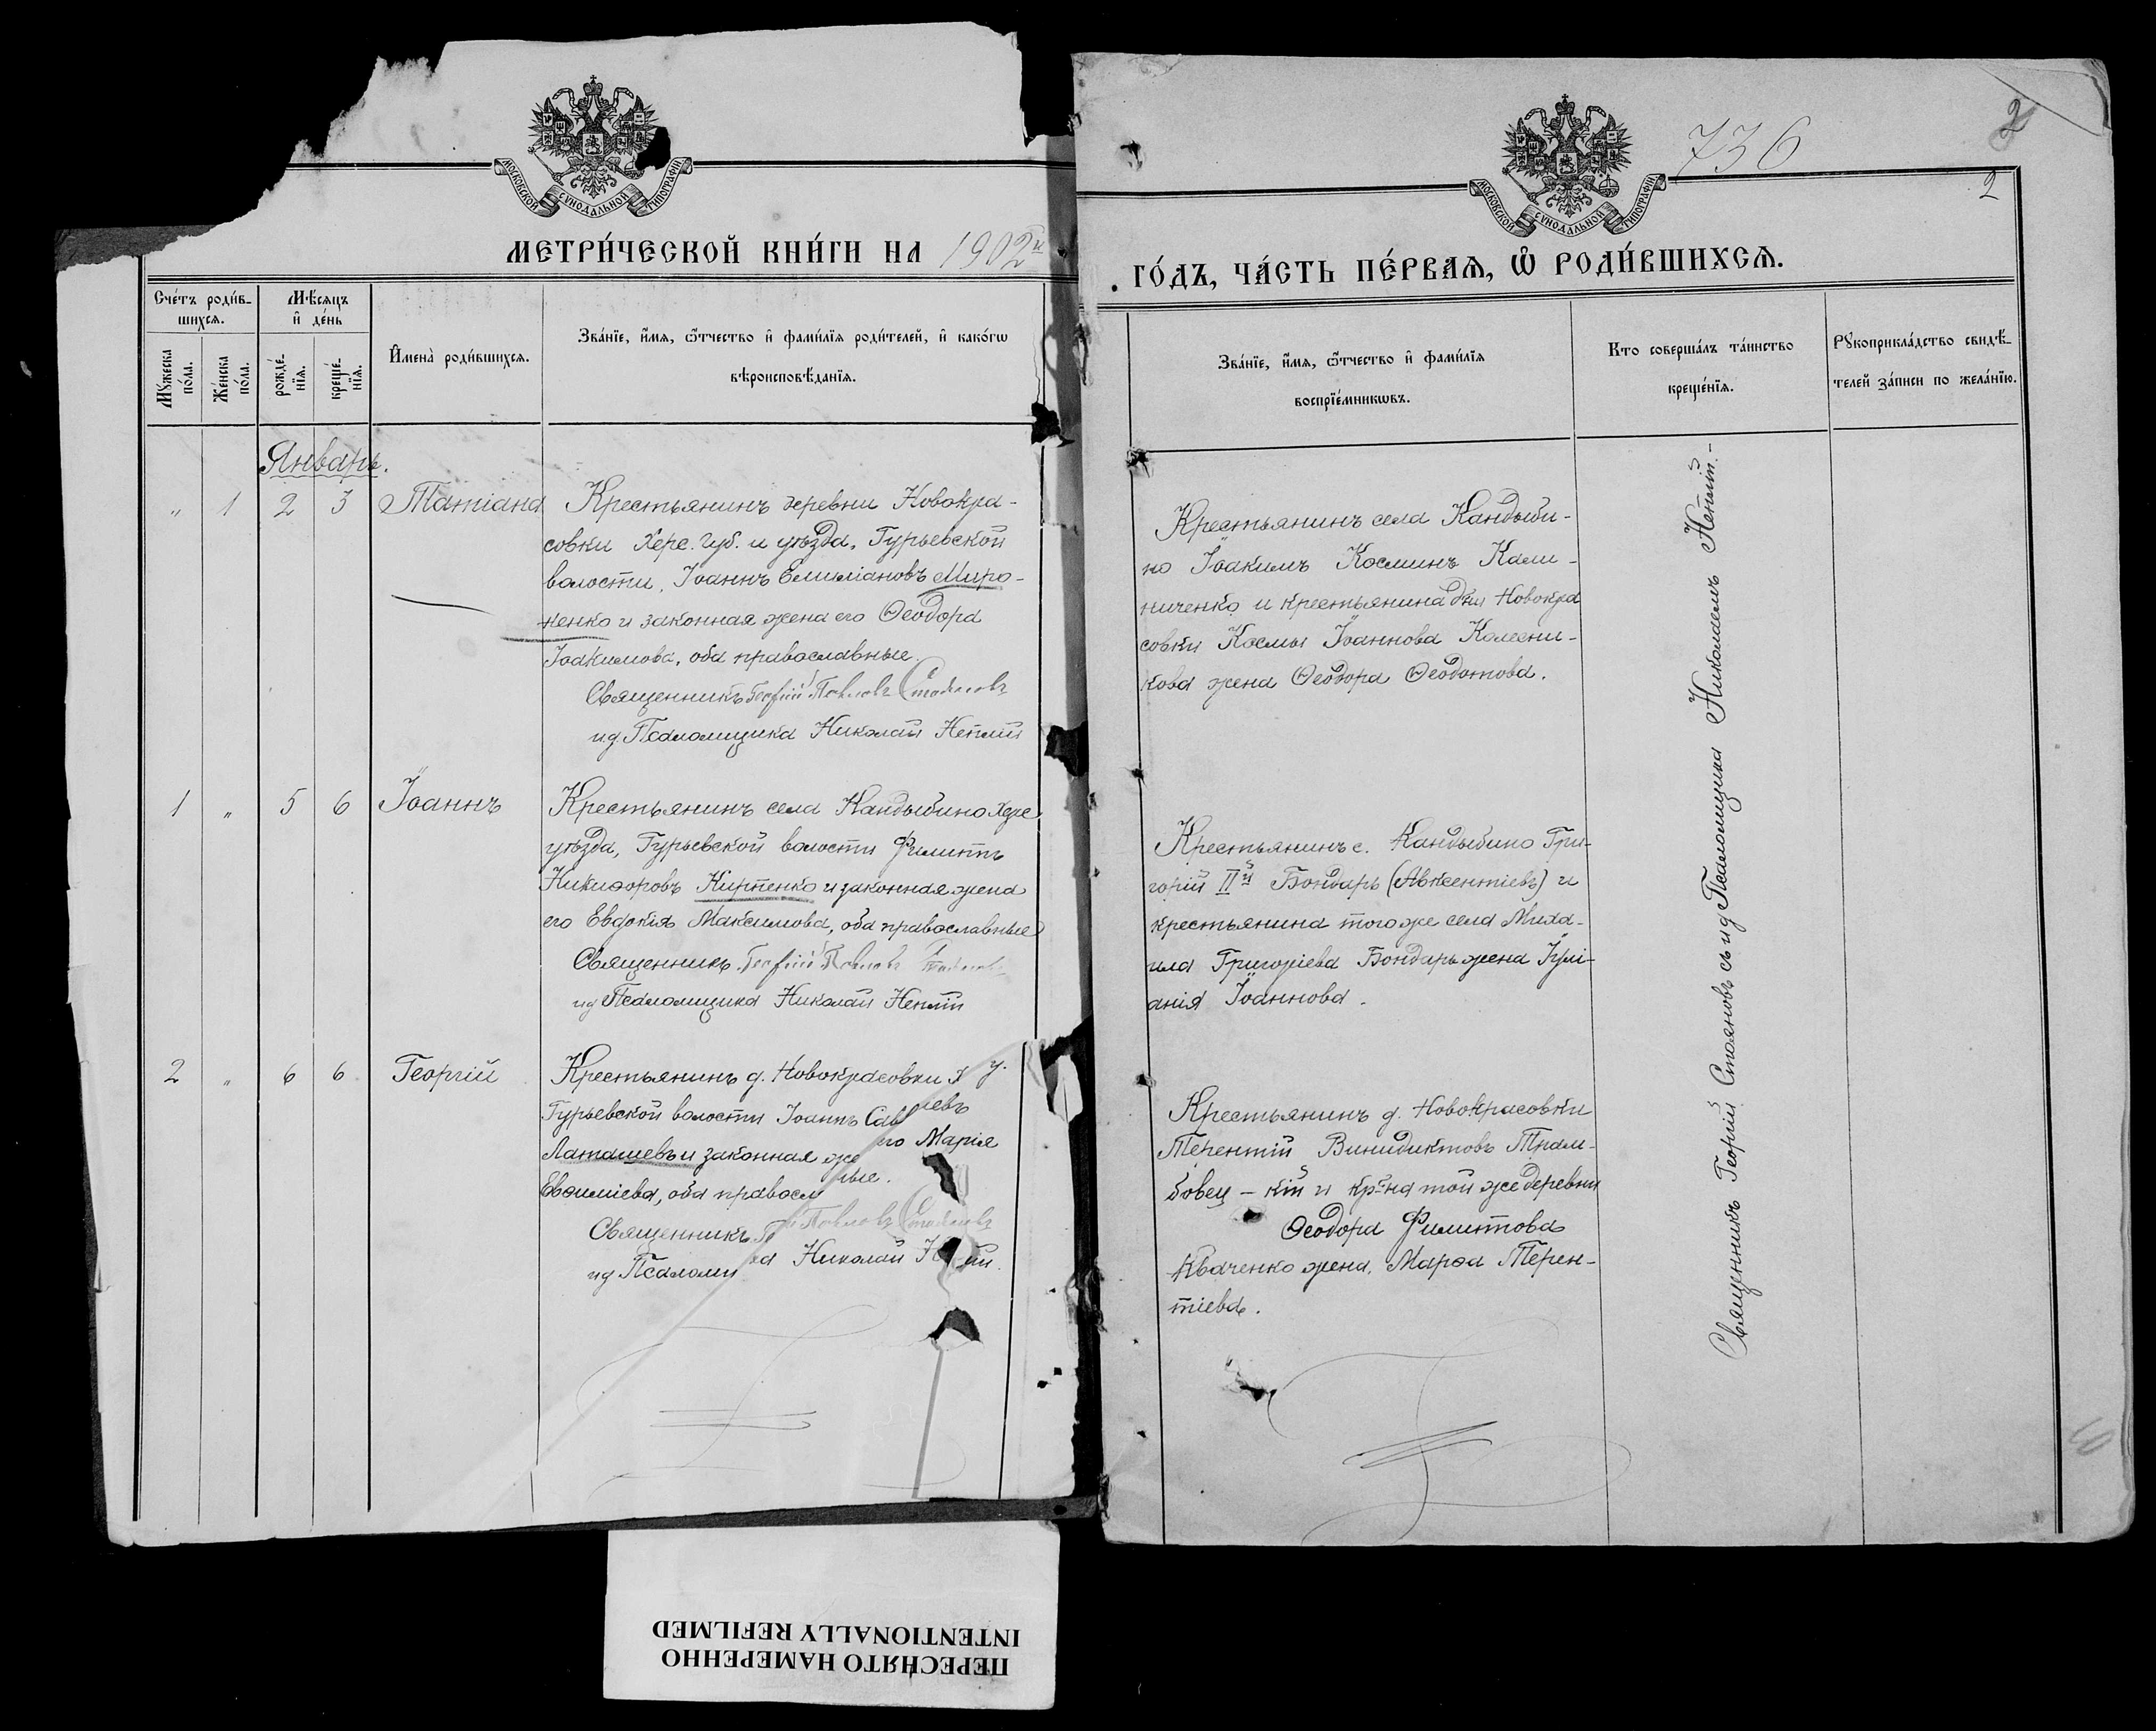 МОСКОВСКОЙ СѴНОДАЛЬНОЙ ТИПОГРАФІИ
МЕТРИ́ЧЕСКОЙ КНИ́ГИ НА 1902й
Счетъ роди́в-
шихсѧ.
Мѣсѧцъ
и҆ де́нь
Мꙋжеска
по́ла.
Же́нска
по́ла.
рожде́-
нїѧ.
креще́-
нїѧ.
И҆мена̀ роди́вшихсѧ.
Зва́нїе, и҆́мѧ, ѻ҆́тчество и҆ фами́лїѧ роди́телей, и҆ како́гѡ
вѣроисповѣ́данїѧ.
Январь.
" 1 2 3 Татіана
Крестьянинъ деревни Новокра-
совки Херс. Губ. и уѣзда, Гурьевской
волости, Іоаннъ Емиліановъ Миро-
ненко и законная жена его Ѳеодора
Іоакимова, оба православные.
Священникъ Георгій Павловъ Стояновъ
и д Псаломщика Николай Неплій
1 " 5 6 Іоаннъ
Крестьянинъ села Кандыбино Херс
уѣзда, Гурьевской волости Филиппъ
Никифоровъ Кирпенко и законная жена
его Евдокія Максимова, оба православные
Священникъ Георгій Павловъ Стояновъ
и д Псаломщика Николай Неплій
2 " 6 6 Георгій
Крестьянинъ д. Новокрасовки Х у.
Гурьевской волости Іоаннъ Сав іевъ
Латашевъ и законная же его Марія
Евѳиміева, оба правосл ные.
Священникъ Г Павловъ Стояновъ
и д Псаломщ ка Николай Не ій.
МОСКОВСКОЙ СѴНОДАЛЬНОЙ ТИПОГРАФІИ
736
2
2
ГО́ДЪ, ЧА́СТЬ ПЕ́РВАѦ, Ѡ҆ РОДИ́ВШИХСѦ.
Зва́нїе, и҆́мѧ, ѻ҆́тчество и҆ фами́лїѧ
воспрїе́мникѡвъ.
Кто соверша́лъ та́инство
креще́нїѧ.
Рꙋкоприкла́дство свидѣ́-
телей за́писи по жела́нїю.
Крестьянинъ села Кандыби-
но Іоакимъ Косминъ Кали-
ниченко и крестьянина д. Новокра
совки Космы Іоаннова Колесни-
кова жена Ѳеодора Ѳеодотова.
Крестьянинъ с. Кандыбино Гри-
горій IIй Бондарь (Авксентіевъ) и
крестьянина того же села Миха-
ила Григоріева Бондарь жена Іулі-
анія Іоаннова.
Крестьянинъ д. Новокрасовки
Терентій Винидиктовъ Трам-
бовец-кій и кр-на той же деревни
Ѳеодора Филиппова
Кваченко жена, Марѳа Терен-
тіева.
Священникъ Георгій Стояновъ съ и д Псаломщика Николаемъ Неплій.-
ПЕРЕСНЯТО НАМЕРЕННО
INTENTIONALLY REFILMED